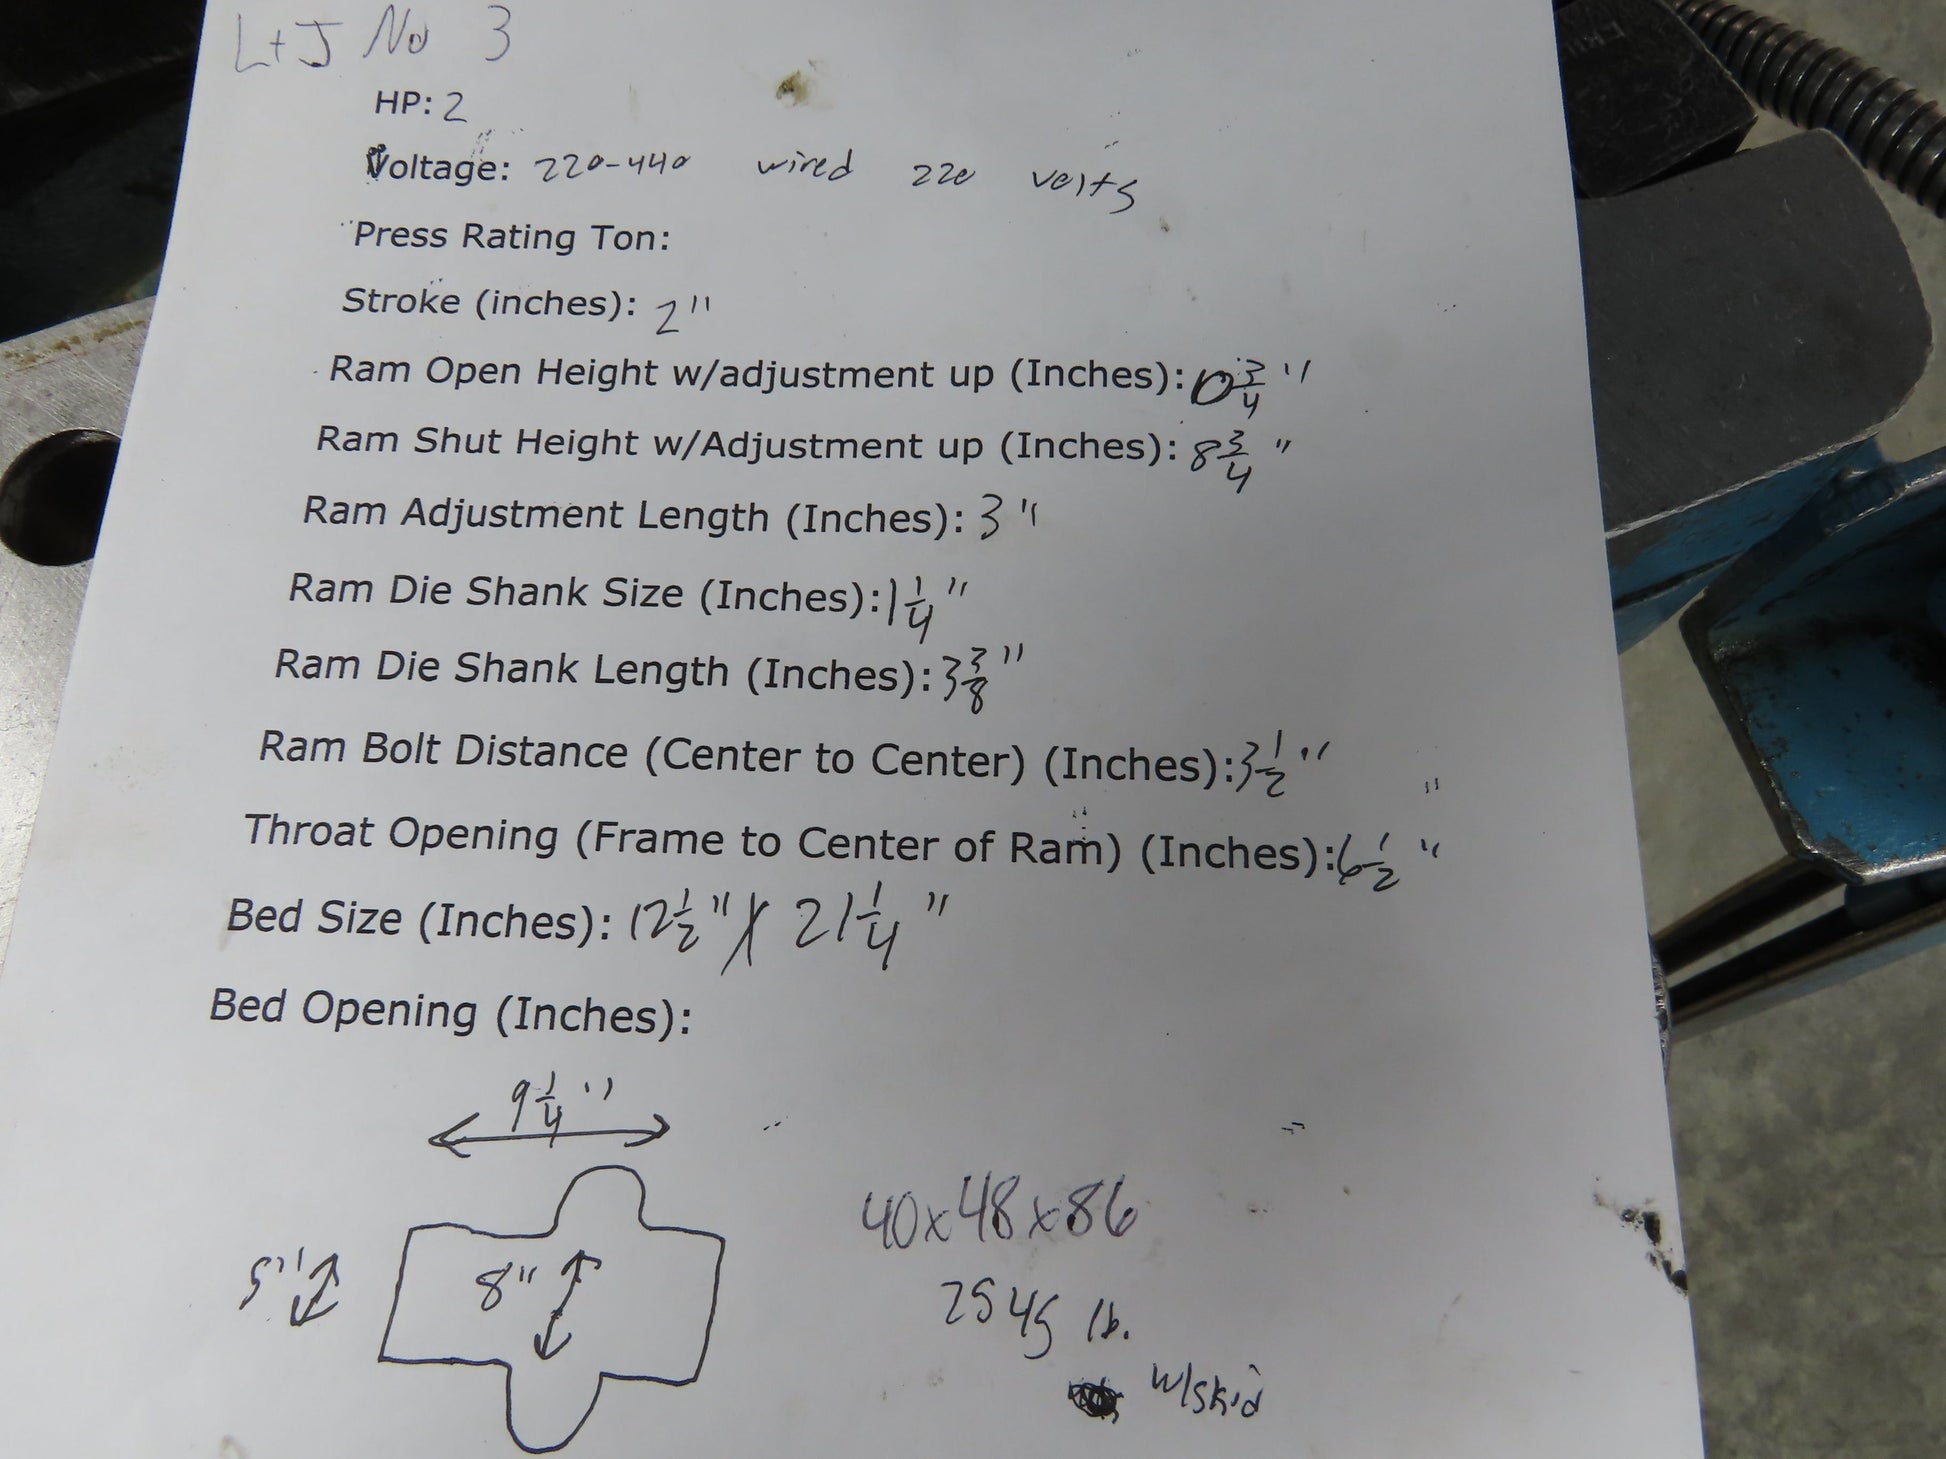 L+J No 3
HP: 2
Voltage: 220-440 wired 220 volts
Press Rating Ton:
Stroke (inches): 2"
Ram Open Height w/adjustment up (Inches): 10 3/4"
Ram Shut Height w/Adjustment up (Inches): 8 3/4"
Ram Adjustment Length (Inches): 3"
Ram Die Shank Size (Inches): 1 1/4"
Ram Die Shank Length (Inches): 3 3/8"
Ram Bolt Distance (Center to Center) (Inches): 3 1/2"
Throat Opening (Frame to Center of Ram) (Inches): 6 1/2"
Bed Size (Inches): 12 1/2" X 21 1/4"
Bed Opening (Inches):
9 1/4"
5"
8"
40x48x86
2545 lb.
w/skid